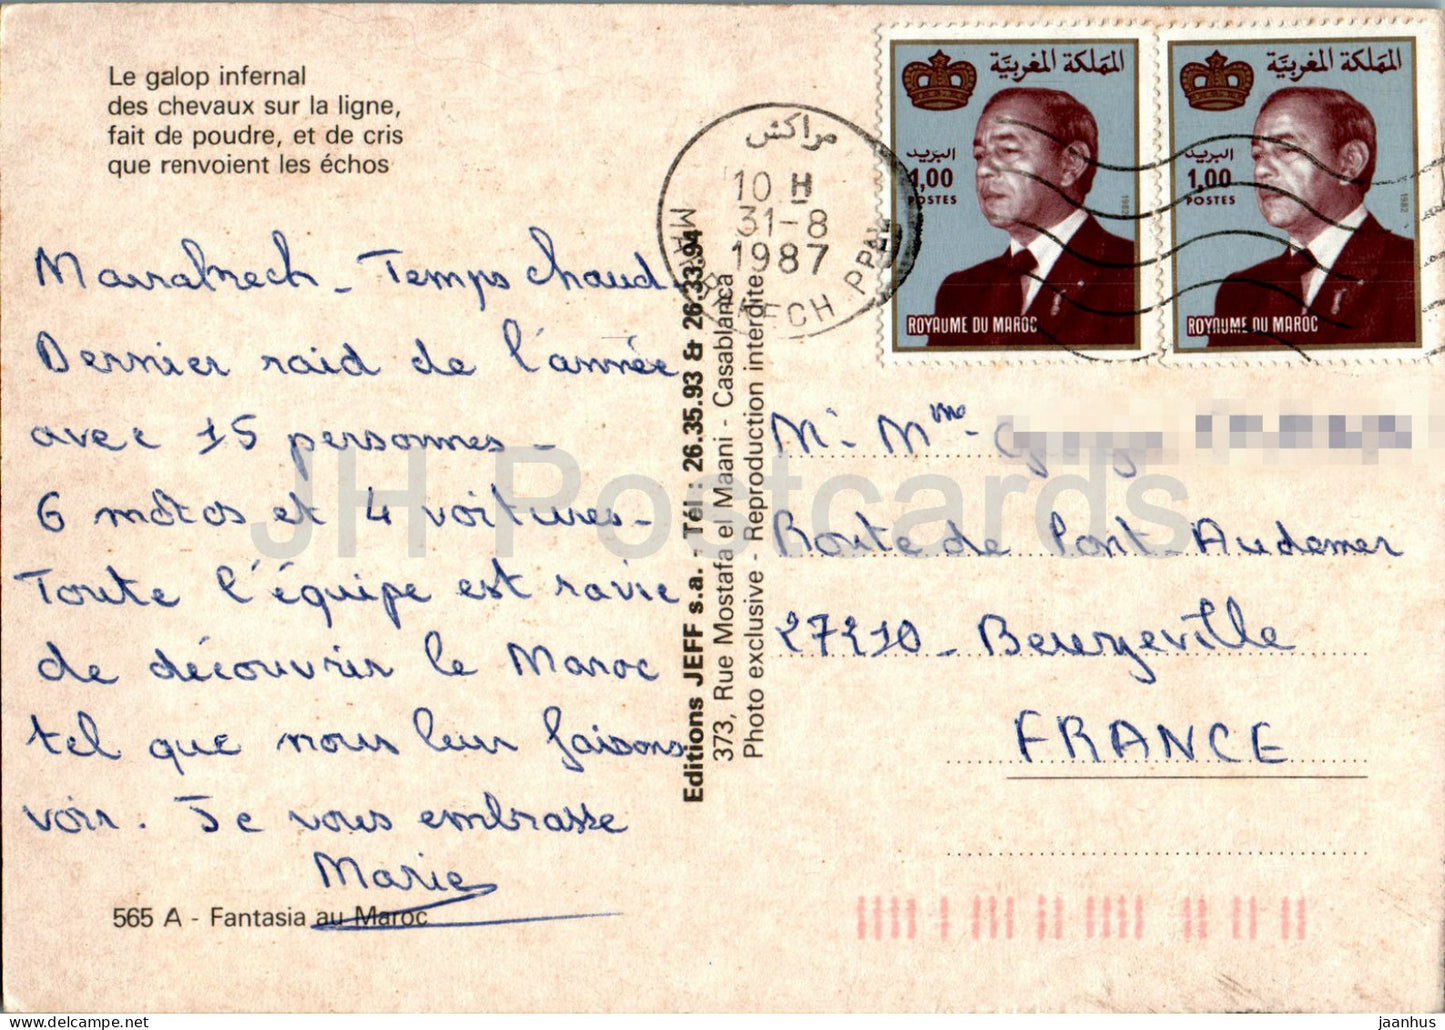 Le galop infernal
des chevaux sur la ligne,
fait de poudre, et de cris
que renvoient les échos
Marrakech - Temps chaud.
Dernier raid de l'année
avec 15 personnes -
6 motos et 4 voitures -
Toute l'équipe est ravie
de découvrir le Maroc
tel que nous leur faisons
voir. Je vous embrasse
Marie
565 A - Fantasia au Maroc
Editions JEFF s.a. - Tél : 26.35.93 & 26.33.94
373, Rue Mostafa el Maani - Casablanca
Photo exclusive - Reproduction interdite
مراكش
10 H
31-8
1987
MARRAKECH PPAL
المملكة المغربية
البريد
1,00
POSTES
1982
ROYAUME DU MAROC
المملكة المغربية
البريد
1,00
POSTES
1982
ROYAUME DU MAROC
Mr - Mme
Route de Pont-Audemer
27210 - Beuzeville
FRANCE
JH Postcards
jaanhus @ delcampe.net